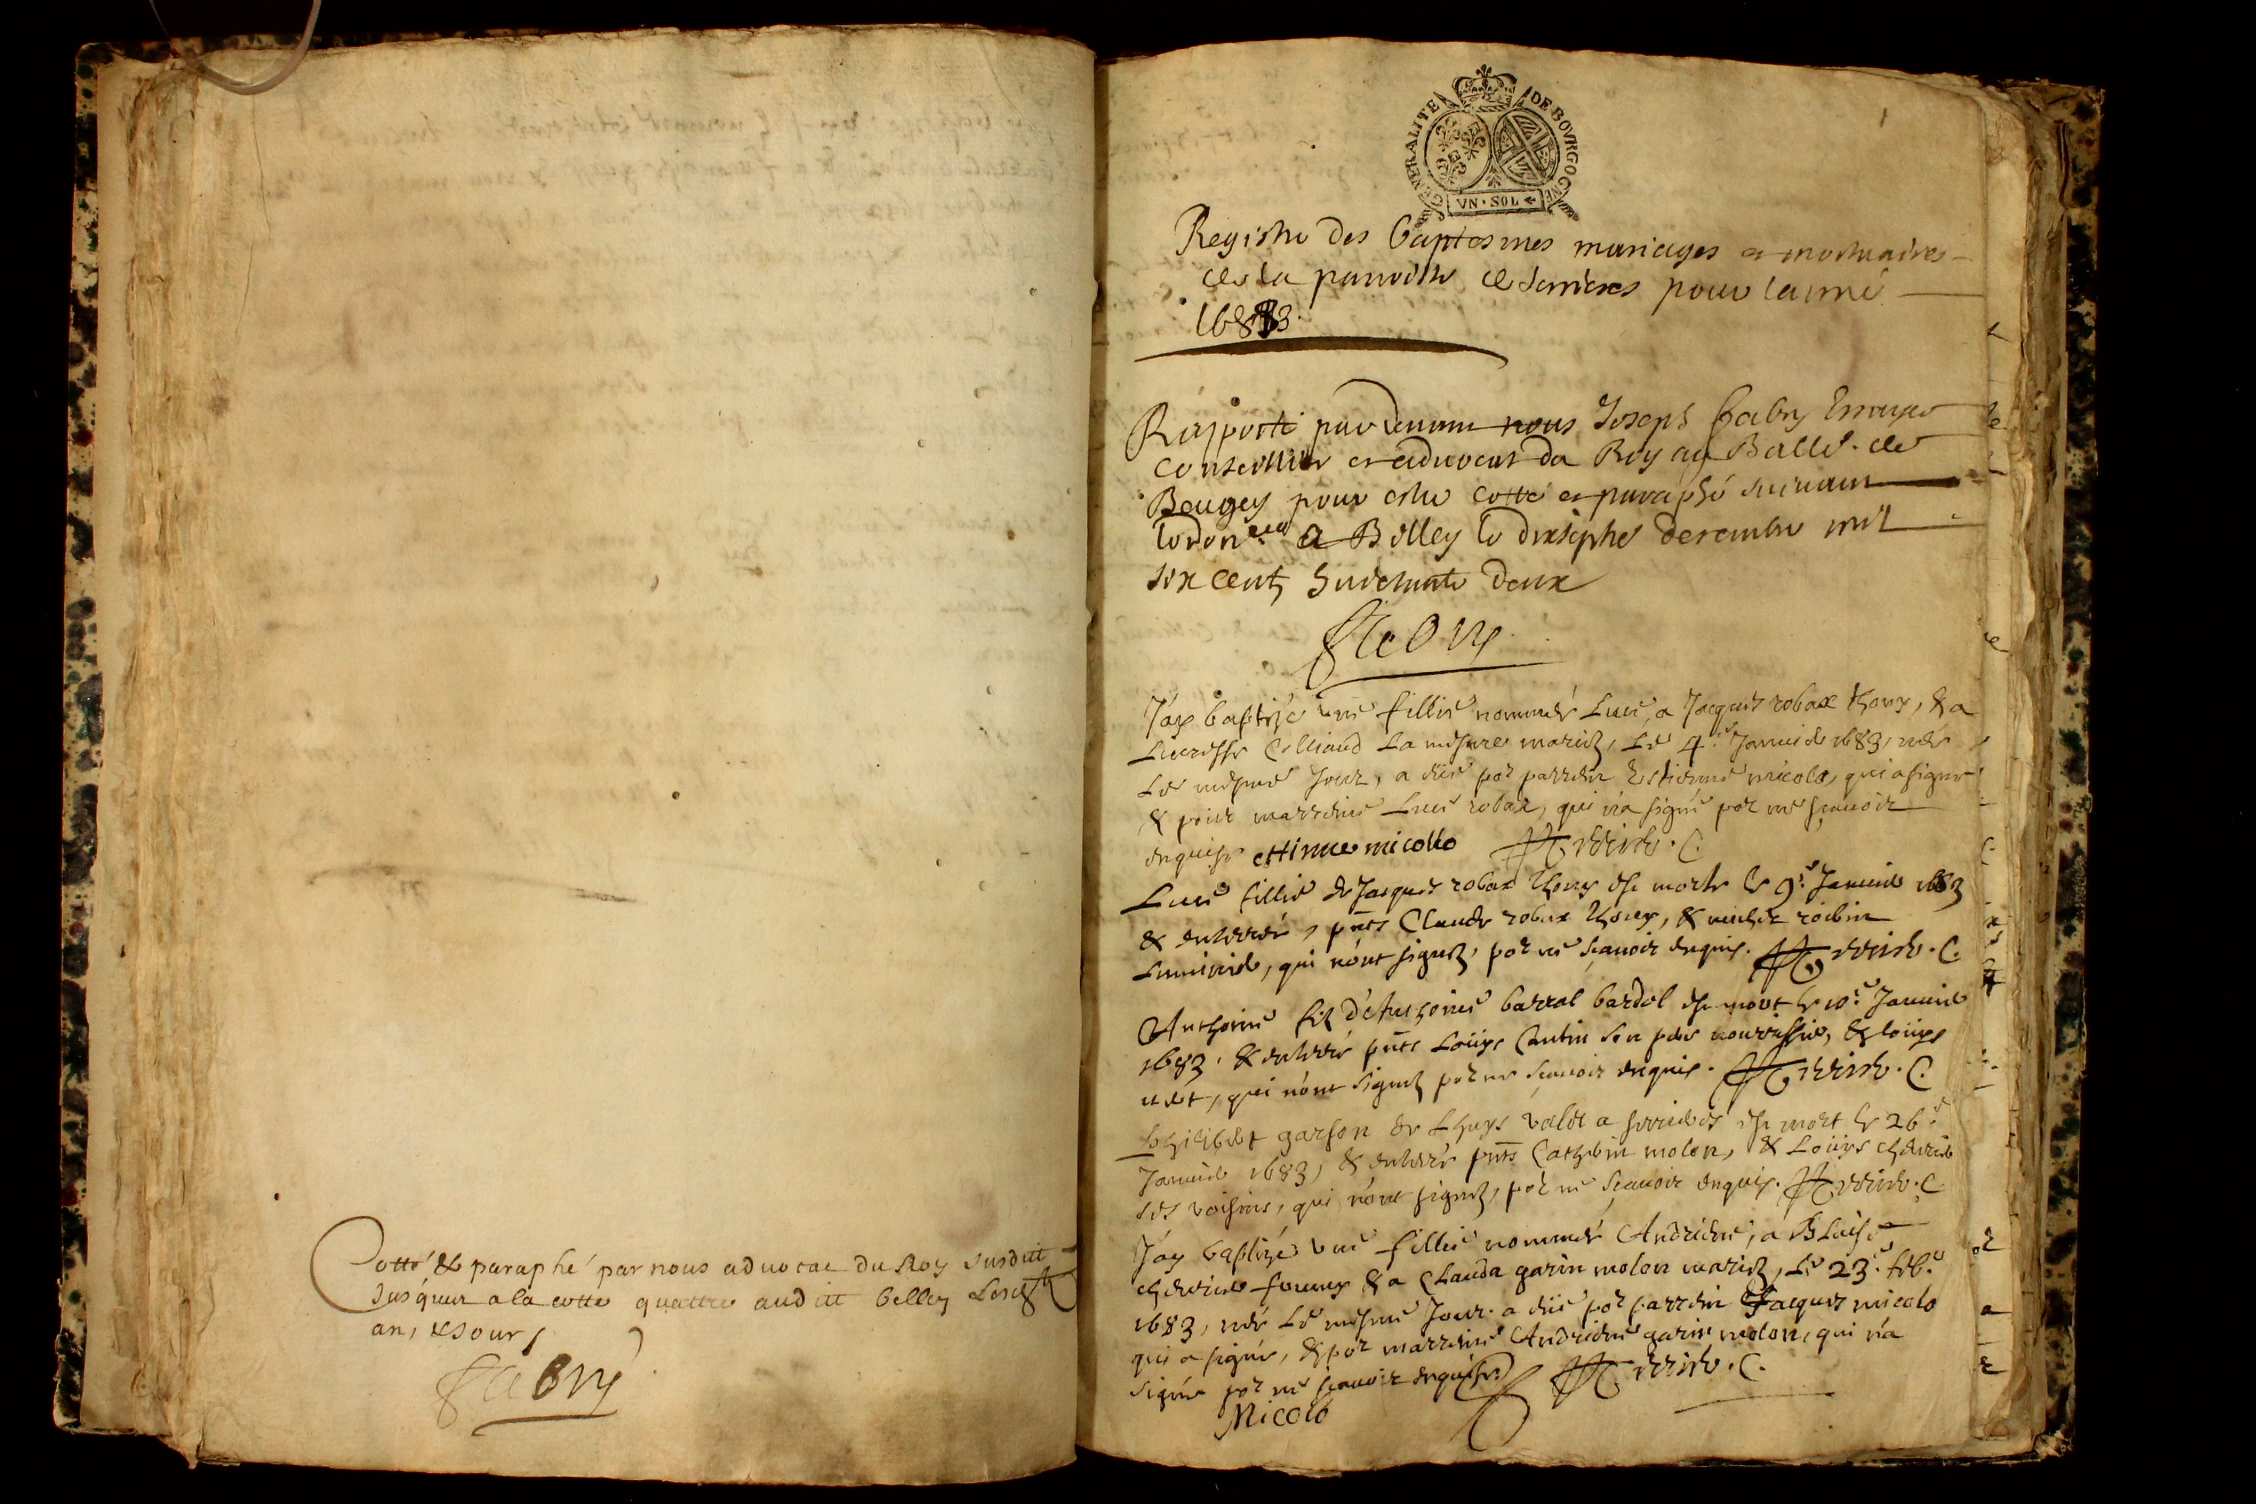 Cotté & paraphé par nous advocat du Roy susdit
jusques a la cotte quattre audit belley lesdits
an, & jour
Fabry
GENERALITE DE BOVRGOGNE
VN · SOL
Registre des baptesmes mariages et mortuaires
de la paroisse de serrieres pour lanné
1683
Rapporté pardevant nous Joseph fabry Escuyer
conseiller et advocat du Roy au Balle. de
Beugey pour estre cotté et paraphé suivant
lordon.ce a Belley le dixsept decembre mil
six centz huictante deux
Fabry
J'ay baptizé une fillie nommée Luce, a Jacques robax thony, & a
Lucresse Colliaud La mesure mariez, Le 4.e Janvier 1683, née
Le mesme Jour, a esté por parrein Estienne micolo, qui a signé
& pour marreine Luce robax, qui n'a signé por ne sçavoir
enquise ettinne micollo C.
Luce fillie de Jacques robax thony est morte le 9.e Janvier 1683
& enterrée, pnts Claude robax thony, & michel robin
Luminier, qui n'ont signez, por ne sçavoir enquis. C.
Anthoine filz d'Anthoine barral bardel est mort le 10.e Janvier
1683. & enterré pnts Loüys Cantin son pere nourrissier, & loüys
qui n'ont signez por ne sçavoir enquis. C.
Philibert garson de Lhuys valet a serrieres est mort le 26.e
Janvier 1683, & enterré pnts Cathelin molon, & Loüys
ses voisins, qui n'ont signez, por ne sçavoir enquis. C
J'ay baptizé une fillie nommée Andriene, a Blaise
& a Clauda garin molon mariez, Le 23.e feb.e
1683, née Le mesme Jour. a esté por parrein Jacques micolo
qui a signé, & por marreine Andriene garin molon, qui n'a
signé por ne sçavoir enquise C.
Micolo